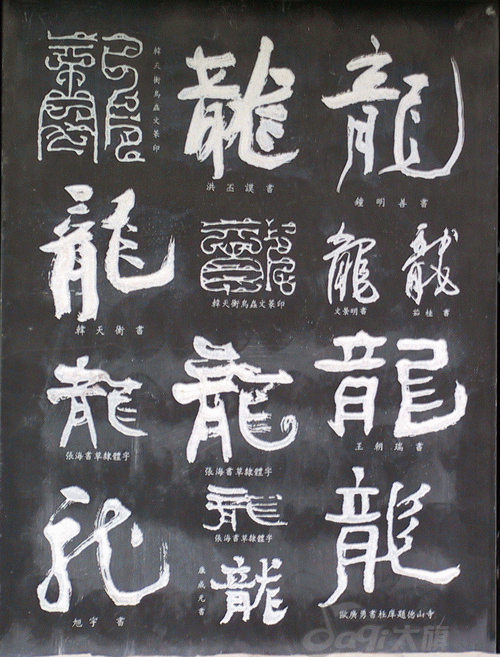 龍
韓天衡鳥蟲文篆印
龍
洪丕謨書
龍
鐘明善書
龍
韓天衡書
龍
韓天衡鳥蟲文篆印
龍
文景明書
龍
茹桂書
龍
張海書草隸體字
龍
張海書草隸體字
龍
王朝瑞書
龙
旭宇書
龍
張海書草隸體字
龍
康成元書
龍
大旗